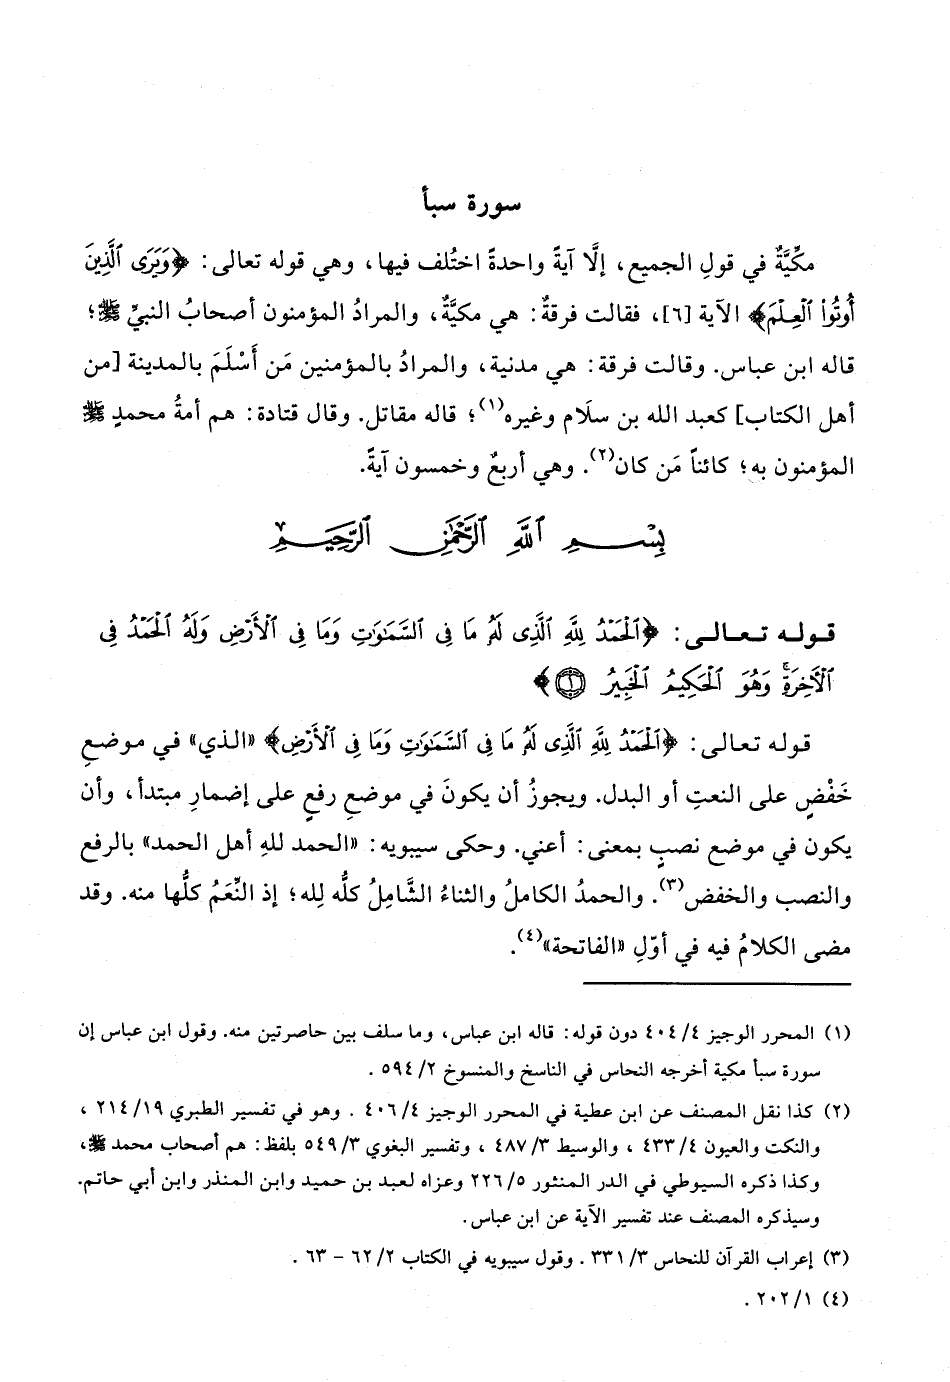 سورة سبأ
مكِّيَّةٌ في قولِ الجميع، إلَّا آيةً واحدةً اختُلف فيها، وهي قوله تعالى: ﴿وَيَرَى ٱلَّذِينَ
أُوتُواْ ٱلْعِلْمَ﴾ الآية [٦]، فقالت فرقةٌ: هي مكيَّةٌ، والمرادُ المؤمنون أصحابُ النبيِّ ﷺ؛
قاله ابن عباس. وقالت فرقة: هي مدنية، والمرادُ بالمؤمنين مَن أَسْلَمَ بالمدينة [من
أهل الكتاب] كعبد الله بن سلَام وغيره(١)؛ قاله مقاتل. وقال قتادة: هم أمةُ محمدٍ ﷺ
المؤمنون به؛ كائناً مَن كان(٢). وهي أربعٌ وخمسون آيةً.
بِسْمِ ٱللَّهِ ٱلرَّحْمَٰنِ ٱلرَّحِيمِ
قوله تعالى: ﴿ٱلْحَمْدُ لِلَّهِ ٱلَّذِى لَهُۥ مَا فِى ٱلسَّمَٰوَٰتِ وَمَا فِى ٱلْأَرْضِ وَلَهُ ٱلْحَمْدُ فِى
ٱلْأَخِرَةِۚ وَهُوَ ٱلْحَكِيمُ ٱلْخَبِيرُ ۝١﴾
قوله تعالى: ﴿ٱلْحَمْدُ لِلَّهِ ٱلَّذِى لَهُۥ مَا فِى ٱلسَّمَٰوَٰتِ وَمَا فِى ٱلْأَرْضِ﴾ «الذي» في موضعِ
خَفْضٍ على النعتِ أو البدل. ويجوزُ أن يكونَ في موضعِ رفعٍ على إضمارِ مبتدأ، وأن
يكون في موضع نصبٍ بمعنى: أعني. وحكى سيبويه: «الحمد للهِ أهل الحمد» بالرفع
والنصب والخفض(٣). والحمدُ الكاملُ والثناءُ الشَّاملُ كلُّه لله؛ إذ النِّعَمُ كلُّها منه. وقد
مضى الكلامُ فيه في أوّلِ «الفاتحة»(٤).
(١) المحرر الوجيز ٤/ ٤٠٤ دون قوله: قاله ابن عباس، وما سلف بين حاصرتين منه. وقول ابن عباس إن
سورة سبأ مكية أخرجه النحاس في الناسخ والمنسوخ ٢/ ٥٩٤ .
(٢) كذا نقل المصنف عن ابن عطية في المحرر الوجيز ٤/ ٤٠٦ . وهو في تفسير الطبري ١٩/ ٢١٤ ،
والنكت والعيون ٤/ ٤٣٣ ، والوسيط ٣/ ٤٨٧ ، وتفسير البغوي ٣/ ٥٤٩ بلفظ: هم أصحاب محمد ﷺ،
وكذا ذكره السيوطي في الدر المنثور ٥/ ٢٢٦ وعزاه لعبد بن حميد وابن المنذر وابن أبي حاتم.
وسيذكره المصنف عند تفسير الآية عن ابن عباس.
(٣) إعراب القرآن للنحاس ٣/ ٣٣١ . وقول سيبويه في الكتاب ٢/ ٦٢ – ٦٣ .
(٤) ١/ ٢٠٢ .